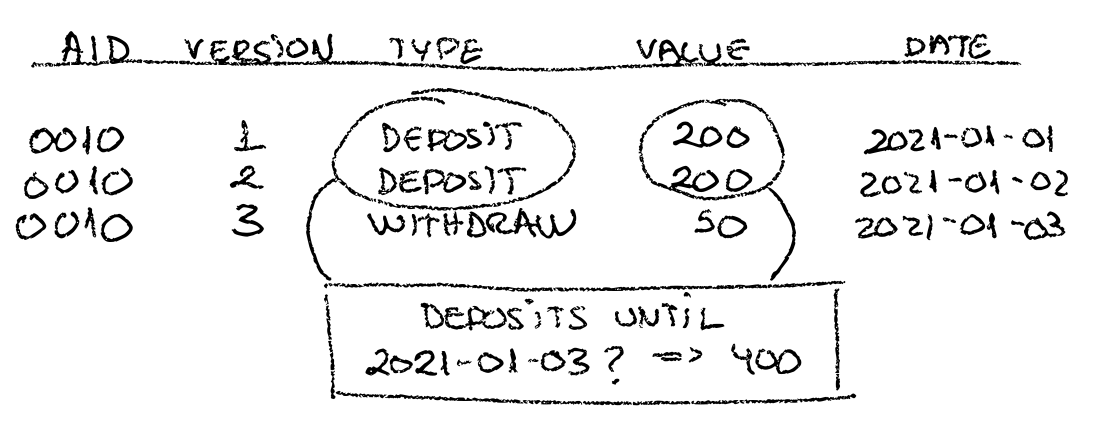 AID VERSION TYPE VALUE DATE
0010 1 DEPOSIT 200 2021-01-01
0010 2 DEPOSIT 200 2021-01-02
0010 3 WITHDRAW 50 2021-01-03
DEPOSITS UNTIL
2021-01-03? => 400